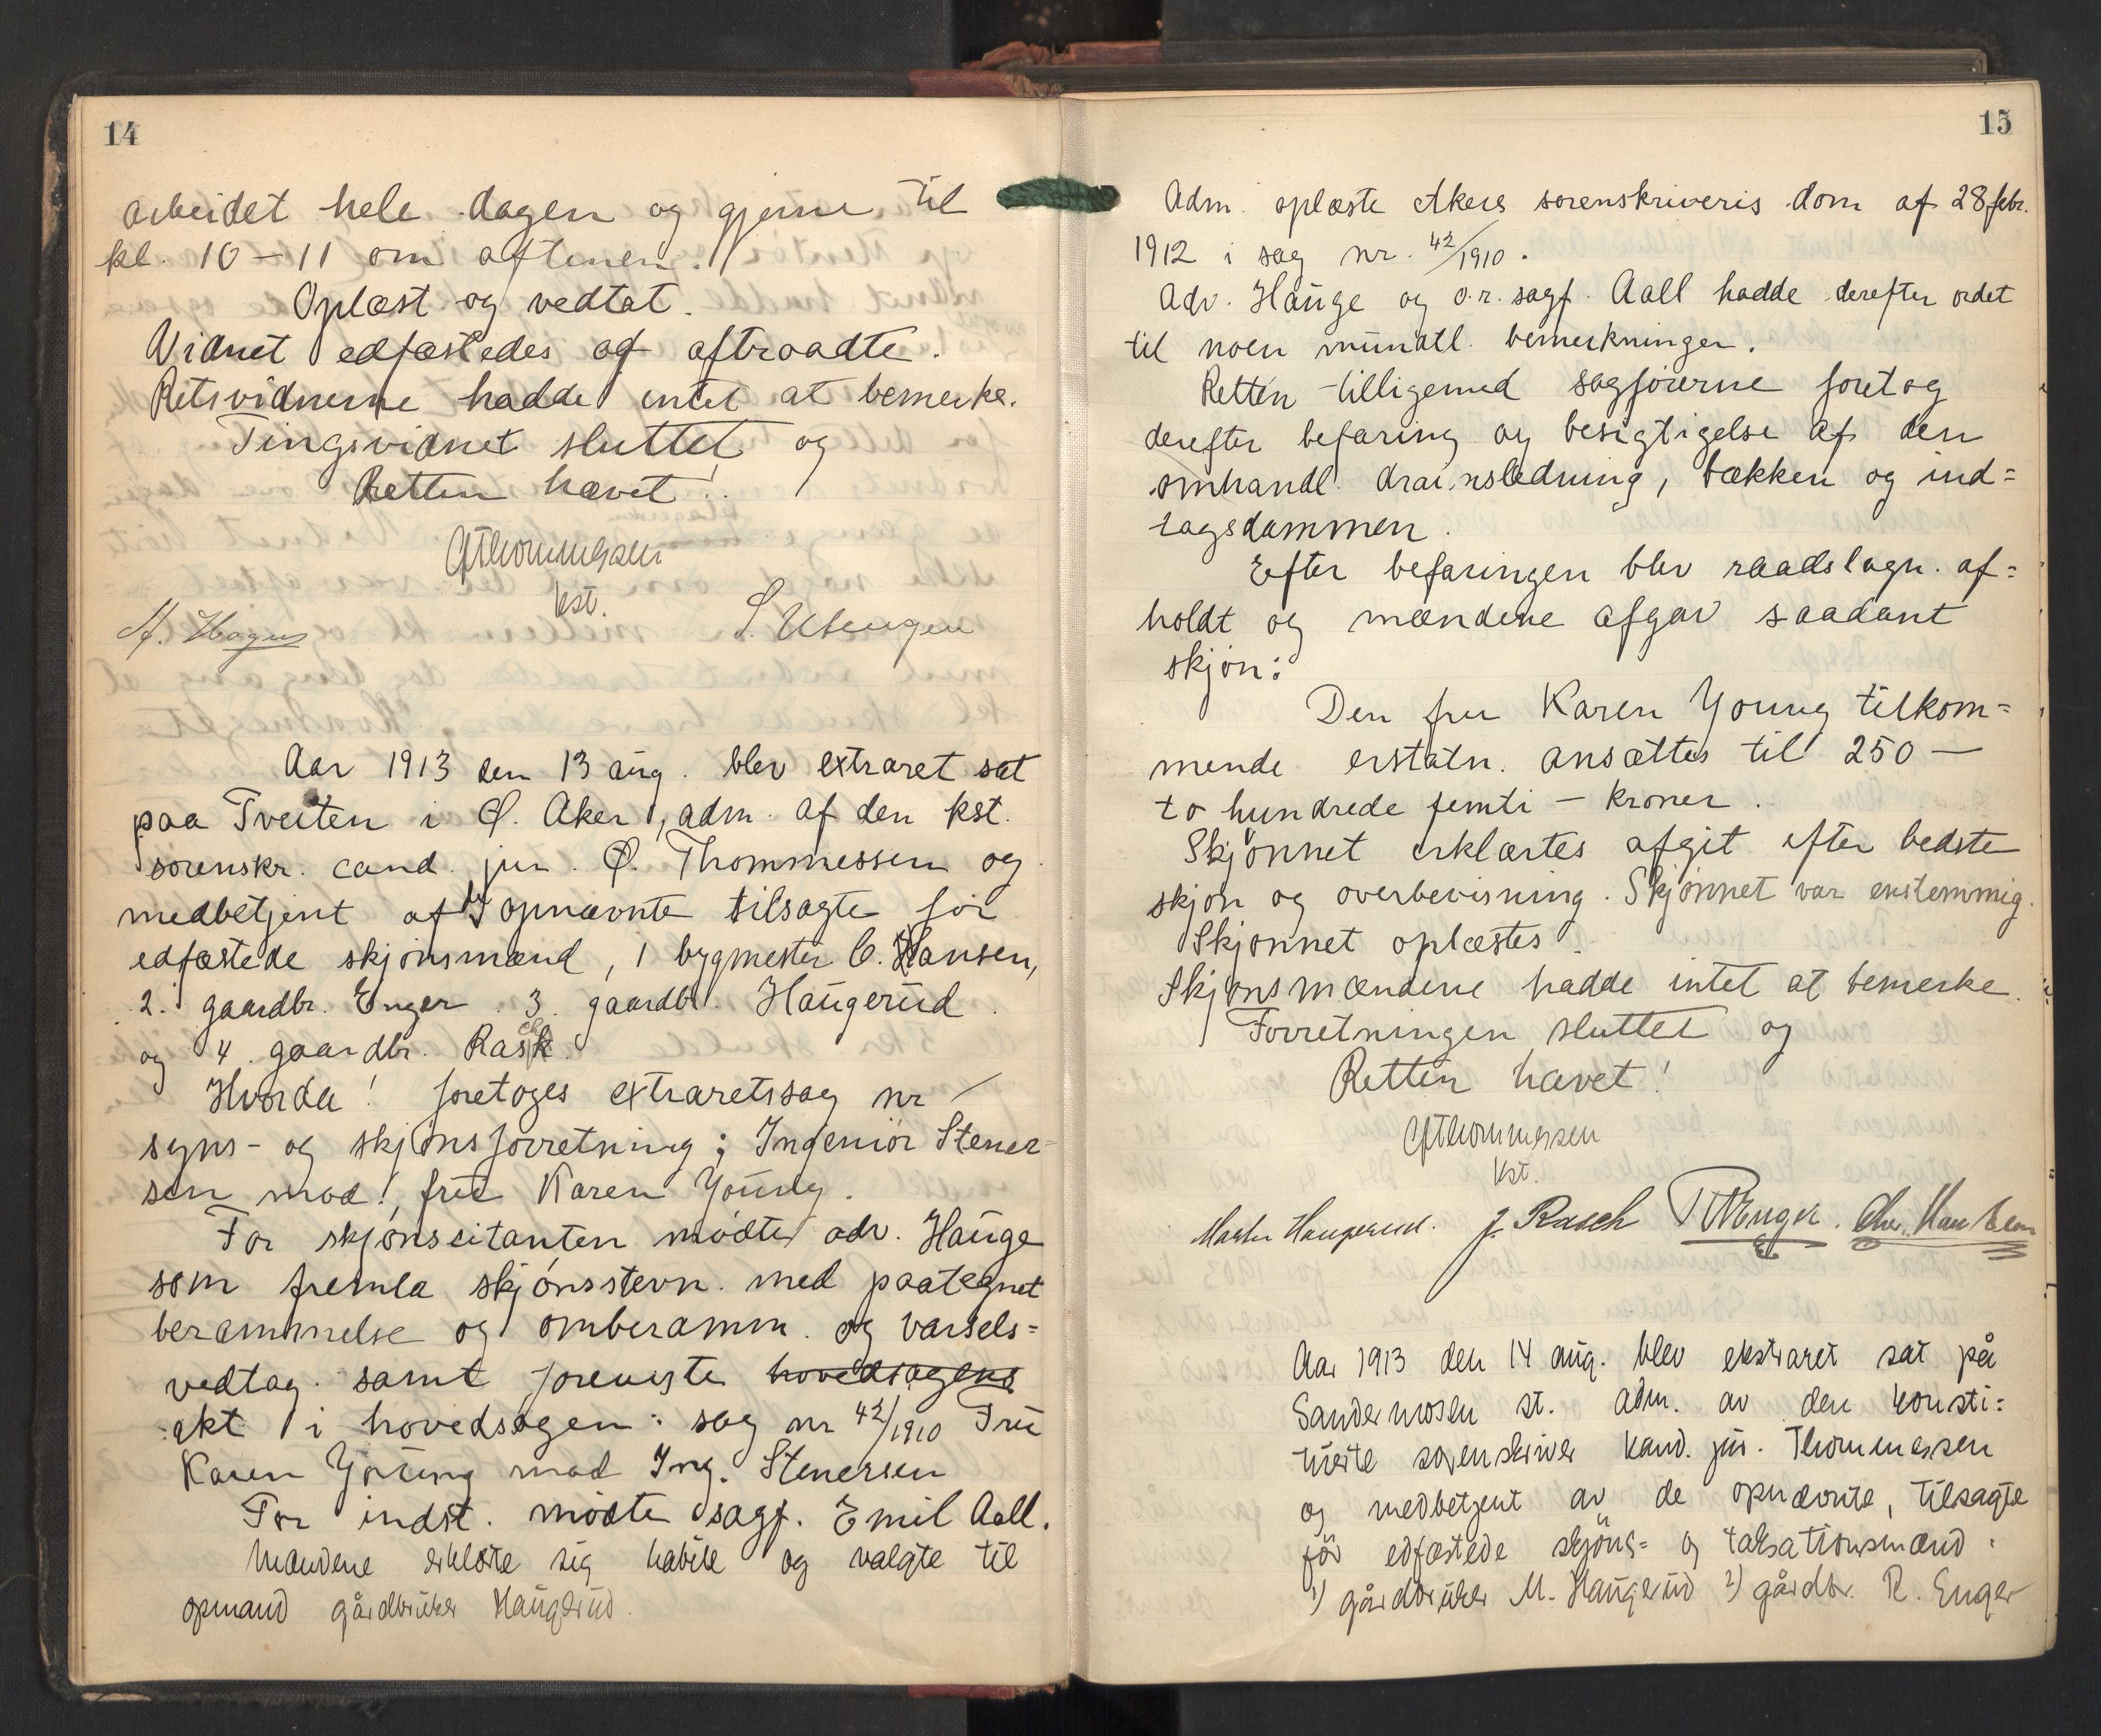 14
arbeidet hele dagen og gjerne til
kl. 10 – 11 om aftenen.
Oplæst og vedtat.
Vidnet edfæstedes og aftraadte.
Retsvidnerne hadde intet at bemerke.
Tingsvidnet sluttet og
Retten hævet!
Thommessen
kst.
A. Hagen S. Ulsengen
Aar 1913 den 13 aug. blev extraret sat
paa Tveiten i Ø. Aker, adm. af den kst.
sorenskr. cand. jur. Ø. Thommessen og
medbetjent af de opnævnte tilsagte før
edfæstede skjønsmænd, 1 bygmester C. Hansen,
2. gaardbr. Enger 3. gaardbr. Haugerud
og 4. gaardbr. Rasch.
Hvorda! foretoges extraretssag nr –
syns- og skjønsforretning: Ingeniør Stener-
sen mod! frue Karen Young.
For skjønscitanten mødte adv. Hauge
som fremla skjønsstevn. med paategnet
berammelse og omberamm. og varsels=
vedtag. samt foreviste hovedsagens
akt i hovedsagen: sag nr 42/1910 Frue
Karen Young mod Ing. Stenersen
For indst. mødte sagf. Emil Aall.
Mændene erklærte sig habile og valgte til
opmand gårdbruker Haugerud.
15
Adm. oplæste Akers sorenskriveris dom af 28 febr.
1912 i sag nr. 42/1910.
Adv. Hauge og o.r. sagf. Aall hadde derefter ordet
til noen mundtl. bemerkninger.
Retten tilligemed sagførerne foretog
derefter befaring og besigtigelse af den
omhandl. drainsledning, bækken og ind=
tagsdammen.
Efter befaringen blev raadslagn. af=
holdt og mændene afgav saadant
skjøn:
Den fru Karen Young tilkom=
mende erstatn. ansættes til 250 —
to hundrede femti – kroner.
Skjønnet erklærtes afgit efter bedste
skjøn og overbevisning. Skjønnet var enstemmig.
Skjønnet oplæstes.
Skjønsmændene hadde intet at bemerke.
Forretningen sluttet og
Retten hævet!
Thommessen
kst.
Martin Haugerud. J. Rasch R Enger. Chr. Hansen
Aar 1913 den 14 aug. blev ekstraret sat på
Sandermosen st. adm. av den konsti=
tuerte sorenskriver kand. jur. Thommessen
og medbetjent av de opnævnte, tilsagte
før edfæstede skjøns= og taksationsmænd:
1) gårdbruker M. Haugerud 2) gårdbr. R. Enger